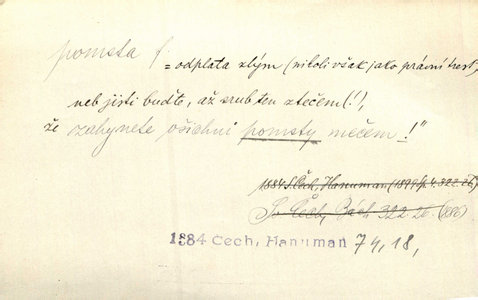 pomsta f.
= odplata zlým (nikoli však jako právní trest)
neb jisti buďte, až srub ten ztečem (!),
že zahynete všichni pomsty mečem!"
1884 S. Čech, Hanuman (1899 sp. 4. 322.
S. Čech, 322. 20. (886)
1884 Cech, Hanuman 74, 18,